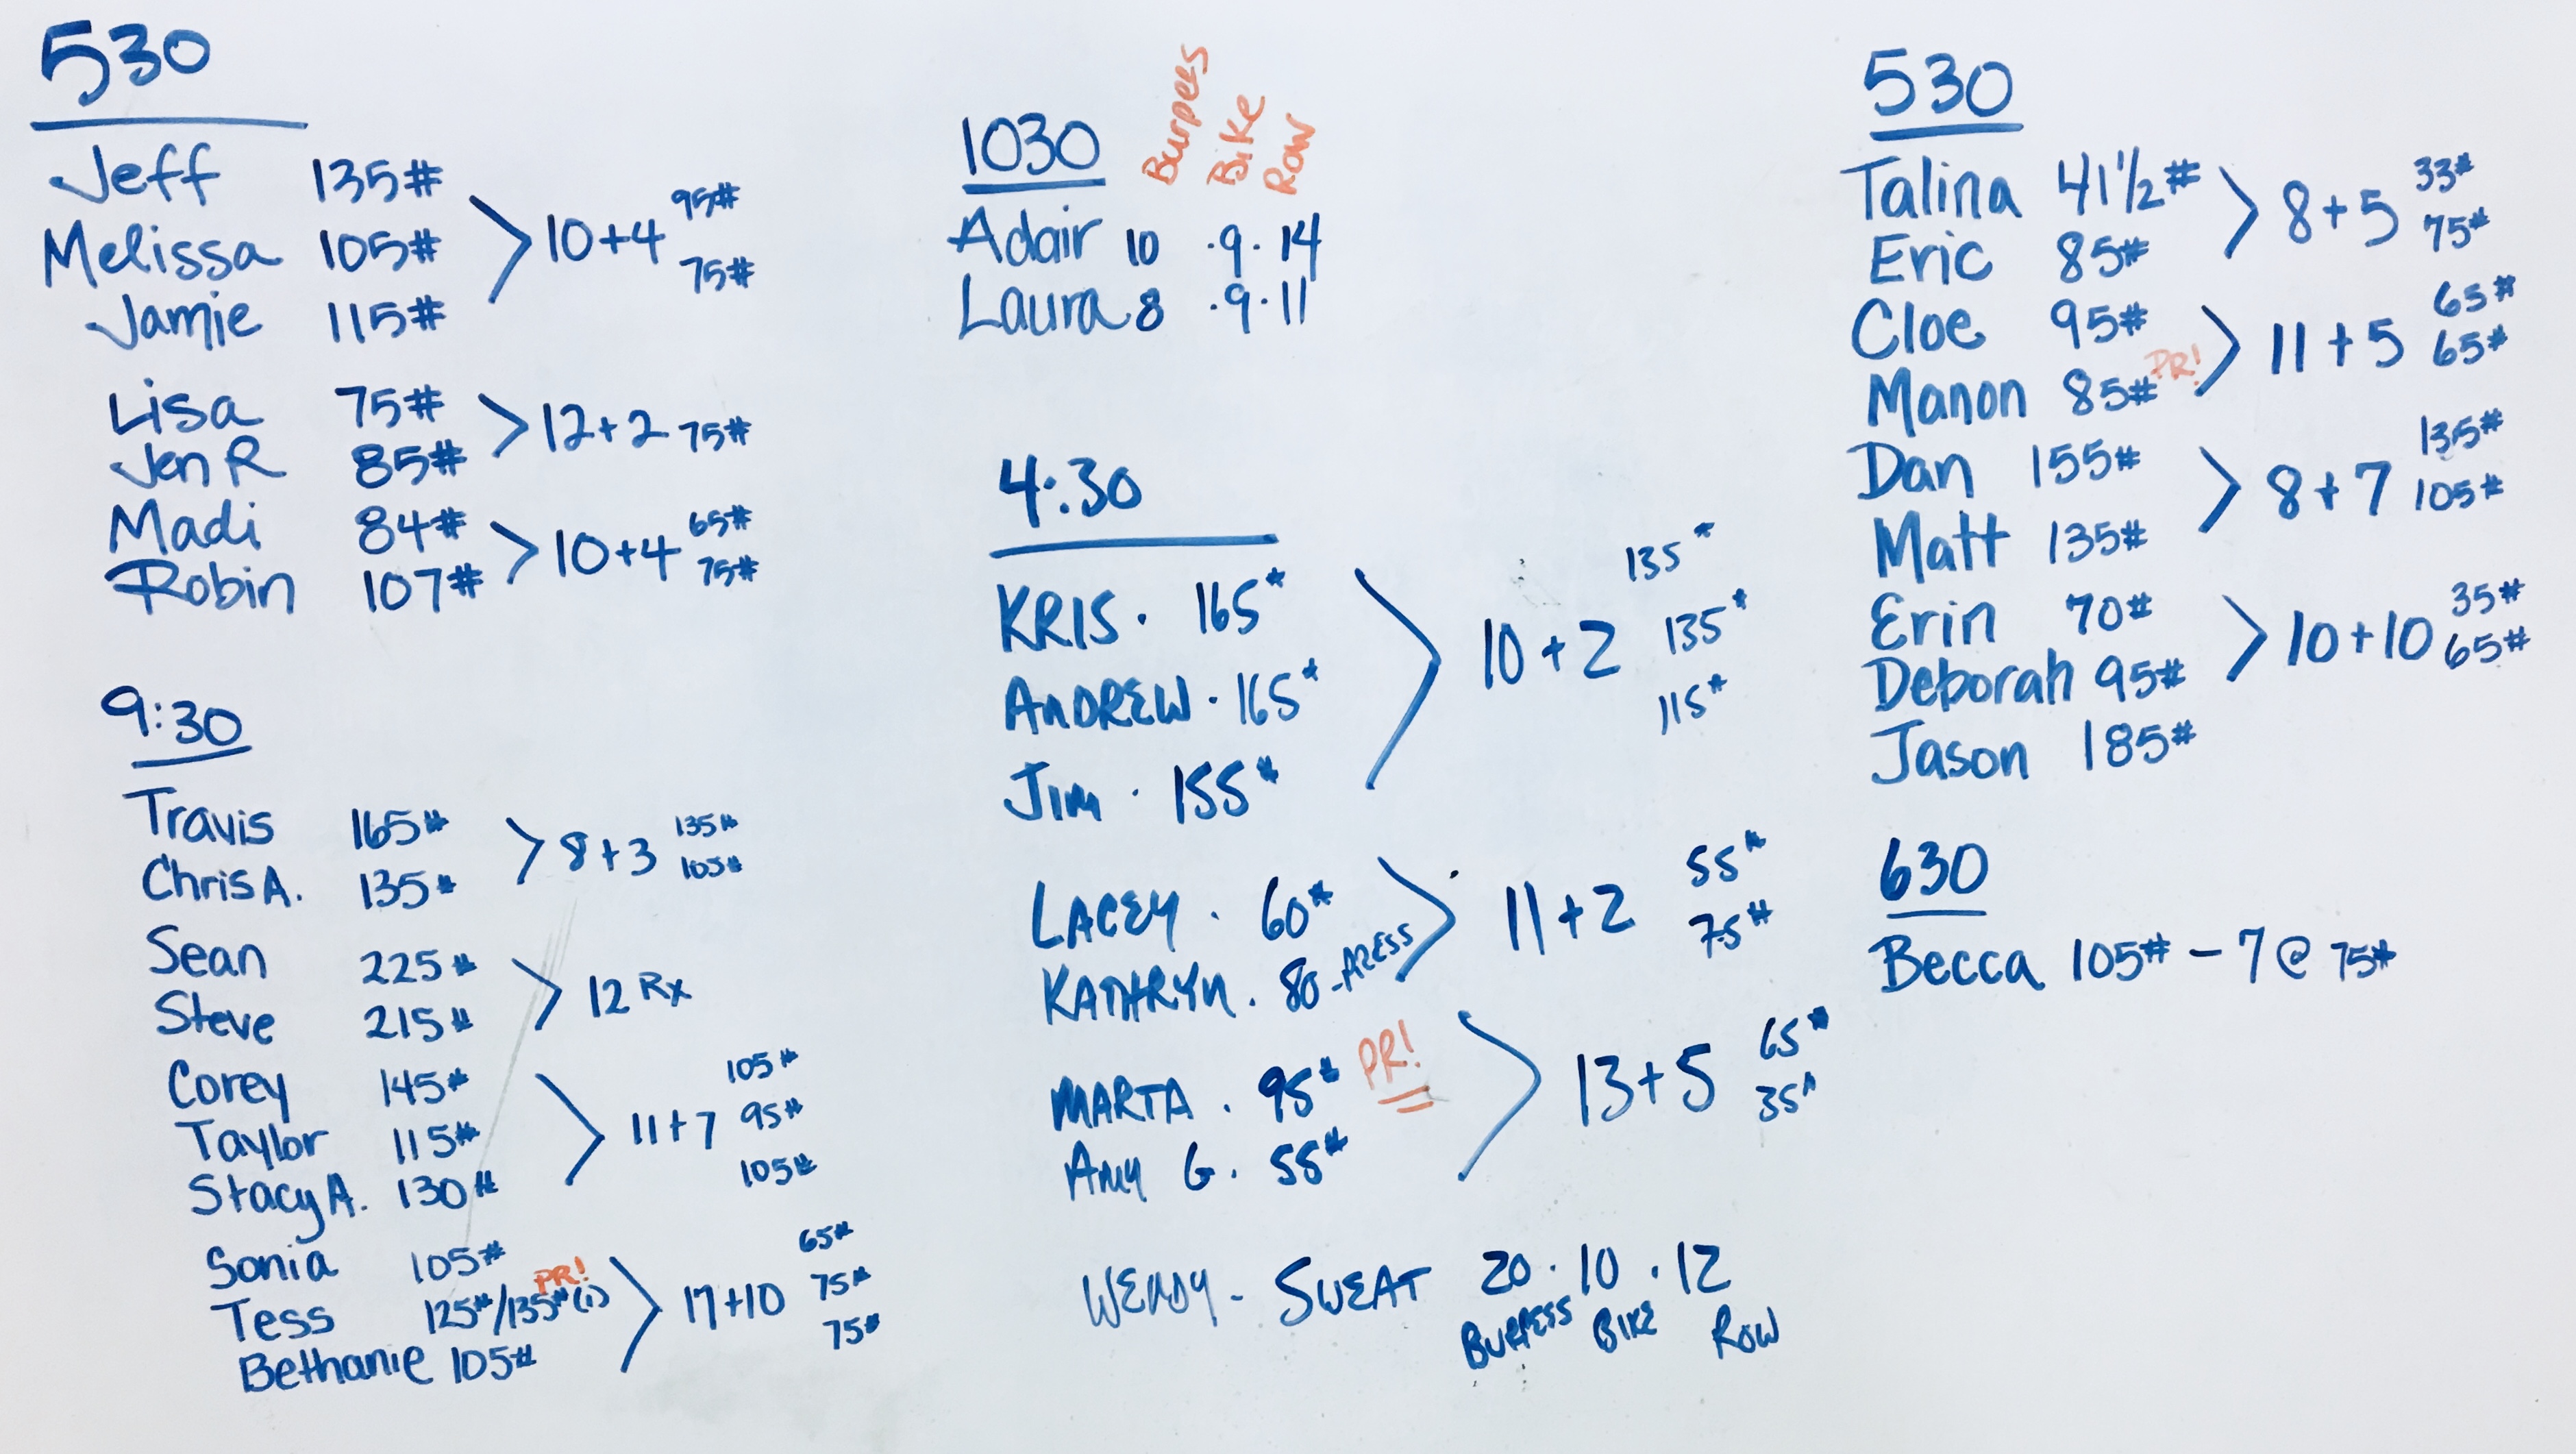 530
Jeff 135#
Melissa 105#
Jamie 115#
10+4 95#
75#
Lisa 75#
Jen R 85#
12+2 75#
Madi 84#
Robin 107#
10+4 65#
75#
9:30
Travis 165#
Chris A. 135#
8+3 135#
105#
Sean 225#
Steve 215#
12 Rx
Corey 145#
Taylor 115#
Stacy A. 130#
11+7 105#
95#
105#
Sonia 105#
Tess 125#/135#(1) PR!
Bethanie 105#
17+10 65#
75#
75#
1030 Burpees Bike Row
Adair 10 ·9·14
Laura 8 ·9·11
4:30
KRIS · 165#
ANDREW · 165#
JIM · 155#
10+2 135#
135#
115#
LACEY · 60#
KATHRYN · 80
11+2 55#
75#
MARTA · 95# PR!
AMY G. 55#
13+5 65#
35#
WENDY - SWEAT 20·10·12
BURPESS BIKE ROW
530
Talina 41½#
Eric 85#
8+5 33#
75#
Cloe 95#
Manon 85# PR!
11+5 65#
65#
Dan 155#
Matt 135#
8+7 135#
105#
Erin 70#
Deborah 95#
10+10 35#
65#
Jason 185#
630
Becca 105# - 7 @ 75#